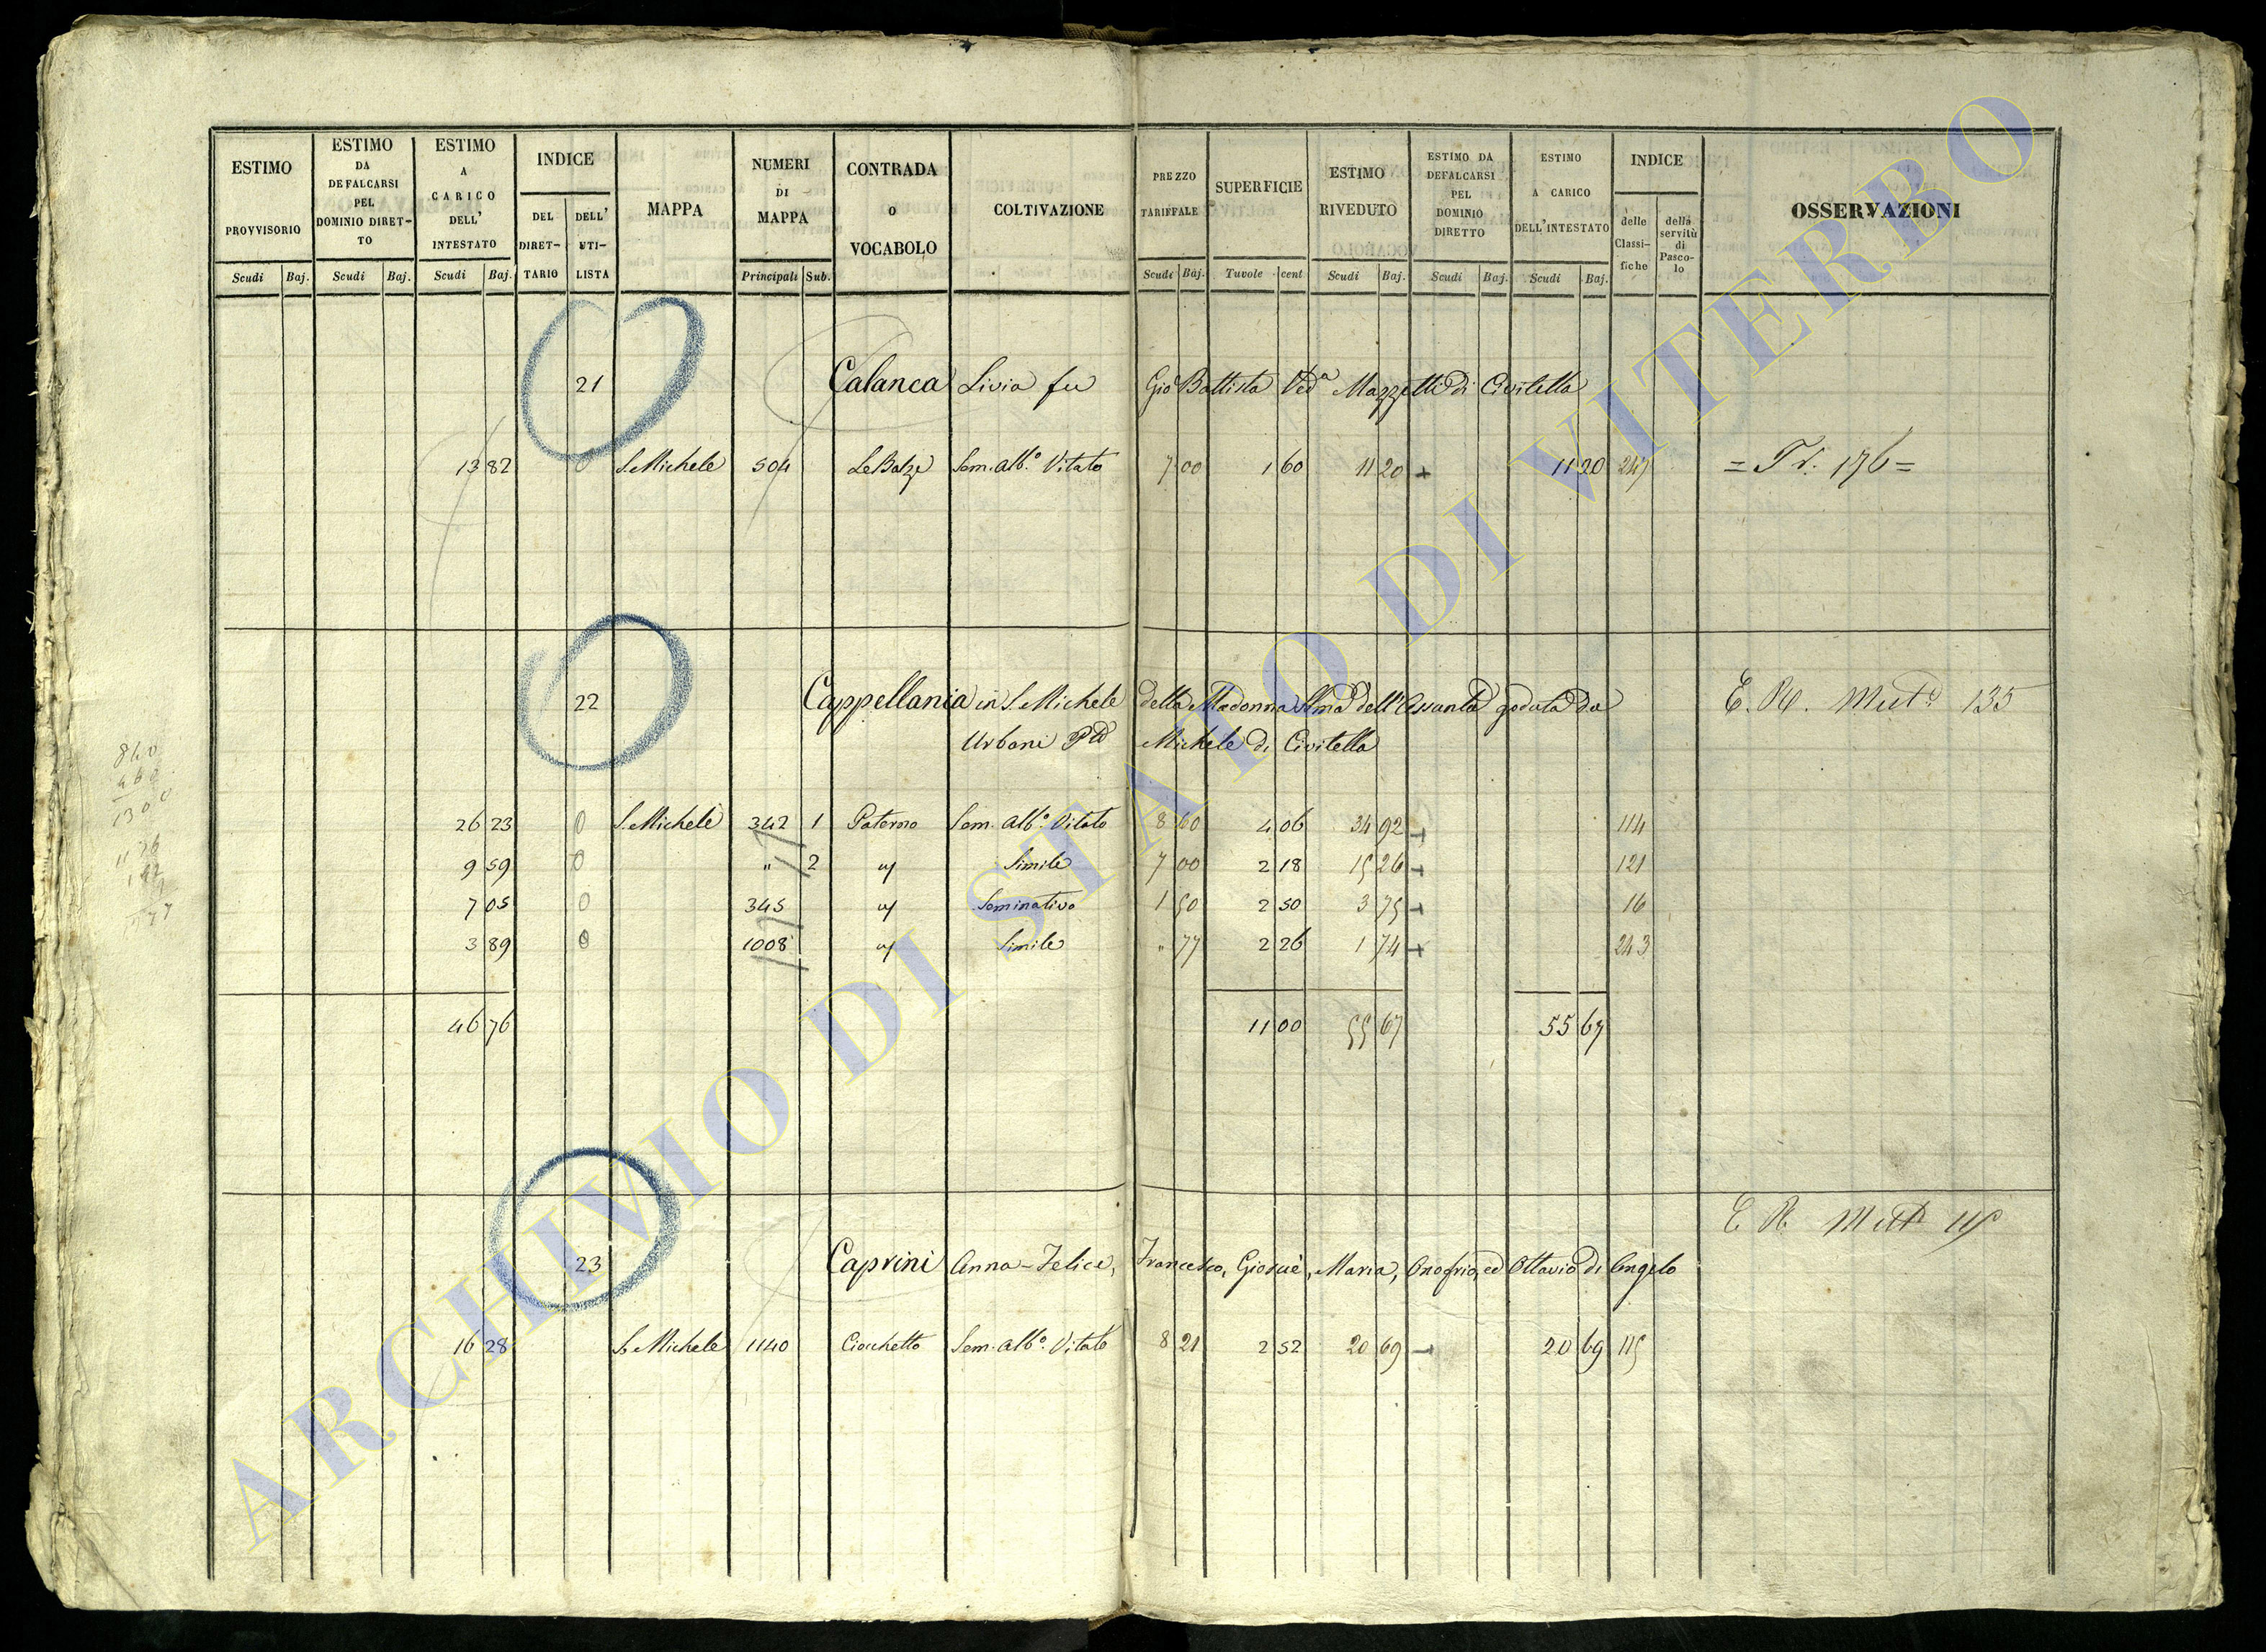 ESTIMO PROVVISORIO
ESTIMO DA DEFALCARSI PEL DOMINIO DIRETTO
ESTIMO A CARICO DELL' INTESTATO
INDICE
DEL DIRETTARIO
DELL' UTILISTA
MAPPA
NUMERI DI MAPPA
CONTRADA o VOCABOLO
COLTIVAZIONE
PREZZO TARIFFALE
SUPERFICIE
ESTIMO RIVEDUTO
ESTIMO DA DEFALCARSI PEL DOMINIO DIRETTO
ESTIMO A CARICO DELL'INTESTATO
INDICE
delle Classifiche
della servitù di Pascolo
OSSERVAZIONI
Scudi Baj. Scudi Baj. Scudi Baj. Principali Sub. Scudi Baj. Tavole cent Scudi Baj. Scudi Baj. Scudi Baj.
21 Calanca Livia fu Gio Battista Ved.a Mazzetti di Civitella
13 82 0 S. Michele 504 Le Balze Sem. Alb.o Vitato 7 00 1 60 11 20 11 20 247 = Tr. 176 =
22 Cappellania in S. Michele della Madonna SSma dell'Assunta goduta da E. R. Mut.e 135
Urbani Michele di Civitella
26 23 0 S. Michele 342 1 Paterno Sem. Alb.o Vitato 8 60 4 06 34 92 114
9 59 0 " 2 " Simile 7 00 2 18 15 26 121
7 05 0 345 " Seminativo 1 50 2 50 3 75 16
3 89 0 1008 " Simile " 77 2 26 1 74 243
46 76 11 00 55 67 55 67
E. R. Mut.e 115
23 Caprini Anna-Felice, Francesco, Giosuè, Maria, Onofrio, ed Ottavio di Angelo
16 28 S. Michele 1140 Ciocchetto Sem. Alb.o Vitato 8 21 2 52 20 69 20 69 115
840
1300
ARCHIVIO DI STATO DI VITERBO